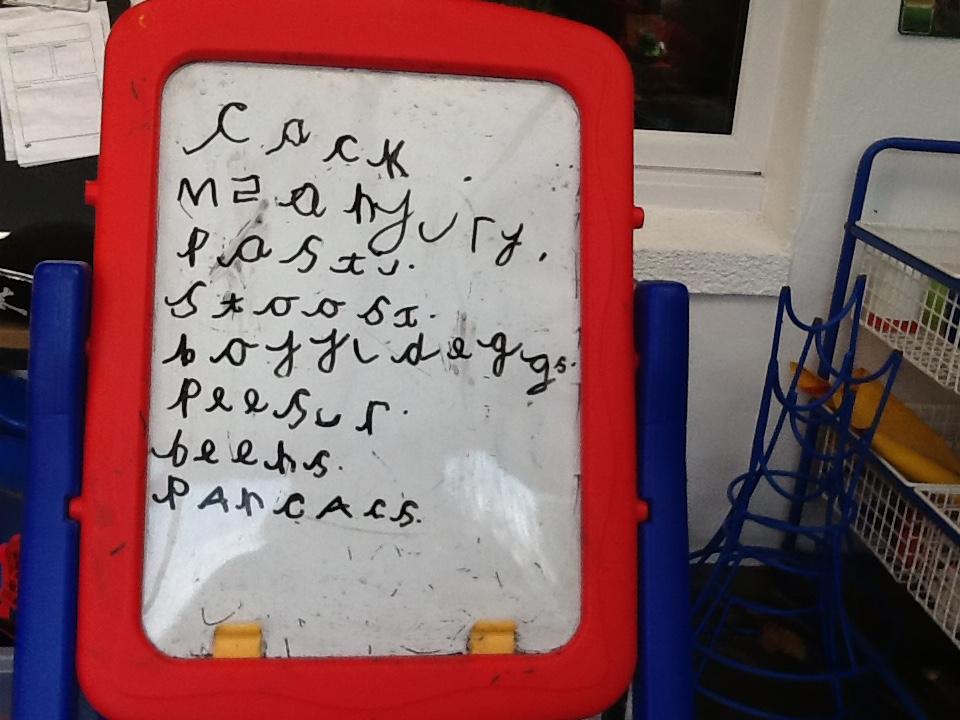 cack
mzanyury.
pastu.
stoost.
boyyldeggs.
peesur.
beens.
PAncAcs.